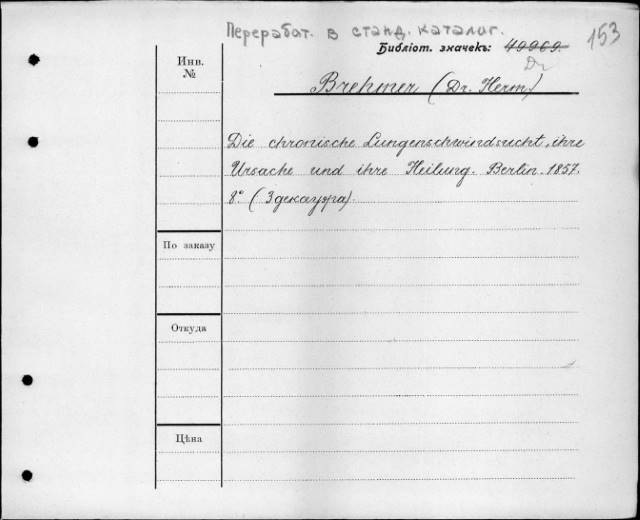 Переработ. в станд. каталог.
153
Библіот. значекъ: 49969.
Dr
Инв.
№
Brehmer (Dr. Herm.)
Die chronische Lungenschwindsucht, ihre
Ursache und ihre Heilung. Berlin. 1857.
8° (Здекауэра).
По заказу
Откуда
Цѣна